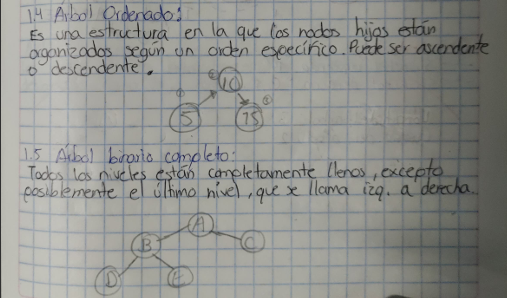 1.4 Árbol Ordenado:
Es una estructura en la que los nodos hijos están
organizados según un orden específico. Puede ser ascendente
o descendente.
10
5 15
1.5 Árbol binario completo:
Todos los niveles están completamente llenos, excepto
posiblemente el último nivel, que se llama izq. a derecha.
A
B C
D E